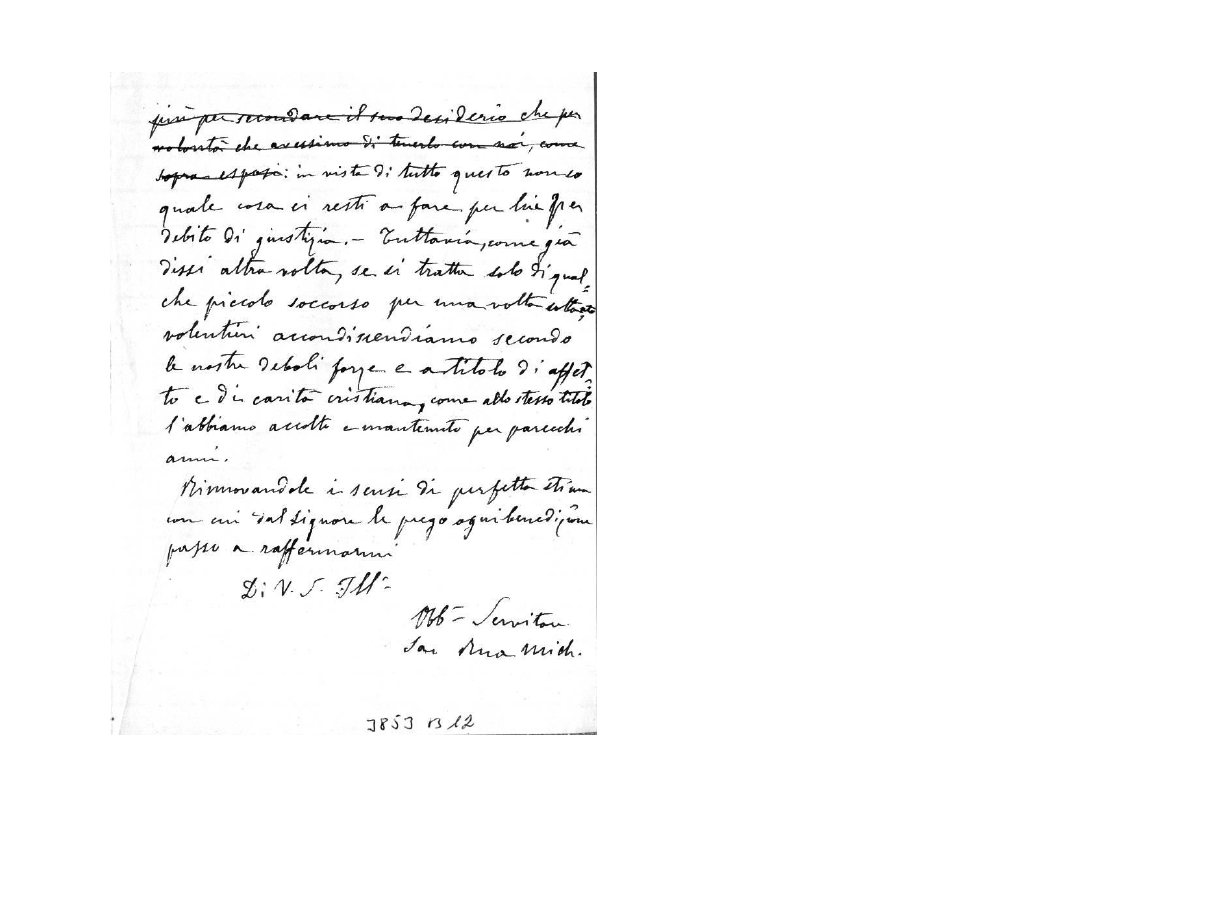 più per secondare il suo desiderio che per
volontà che avessimo di tenerlo con noi, come
sopra esposi: in vista di tutto questo non so
quale cosa ci resti a fare per lui per
debito di giustizia. – Tuttavia, come già
dissi altra volta, se si tratta solo di qual=
che piccolo soccorso per una volta soltanto,
volentieri accondiscendiamo secondo
le nostre deboli forze e a titolo di affet=
to e di carità cristiana, come allo stesso titolo
l'abbiamo accolto e mantenuto per parecchi
anni.
Rinnovandole i sensi di perfetta stima
con cui dal Signore le prego ogni benedizione
passo a raffermarmi
Di V. S. Ill.
Obb. Servitore
Sac Rua Mich.
3853 B 12